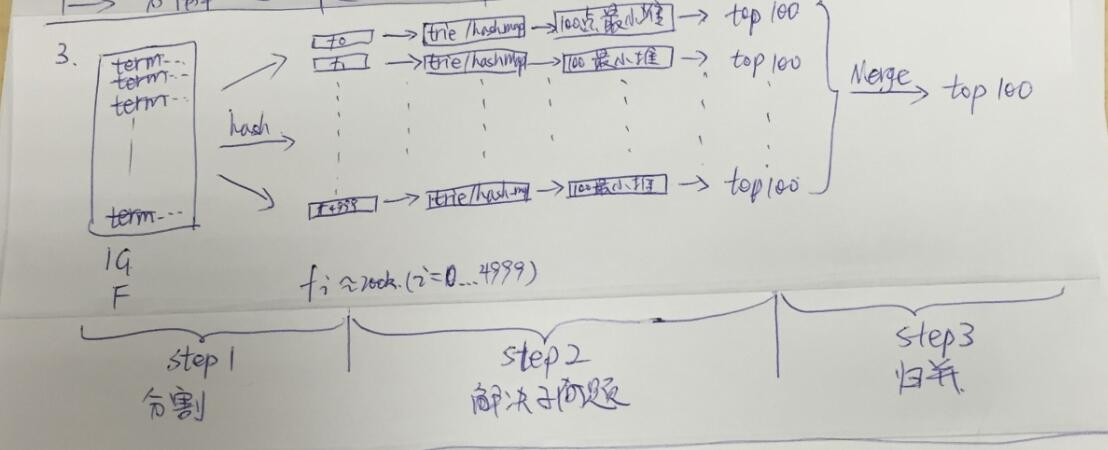 3.
term...
term...
term...
term...
1G
F
hash
f0
trie/hashmap
100点最小堆
top 100
f1
trie/hashmap
100最小堆
top 100
f4999
trie/hashmap
100最小堆
top 100
Merge
top 100
fi ≈ 200k. (i=0...4999)
step 1
分割
step 2
解决子问题
step 3
归并